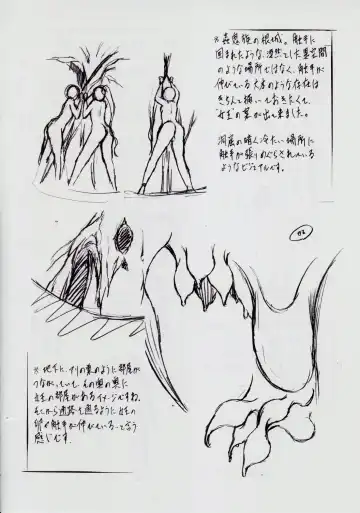 ※蟲惑姫の根城。触手に
囲まれたような、漠然とした異空間
のような場所ではなく、触手が
伸びている大元のような存在は
きちんと描いておきたくて、
女王の巣が出て来ました。
洞窟の暗く冷たい場所に
触手が張りめぐらされている
ようなビジュアルです。
42
※地下に、アリの巣のように部屋が
つながっていて、その奥の奥に
女王の部屋があるイメージですね。
そこから通路を通るように女王の
卵や触手が伸びている、と言う
感じです。